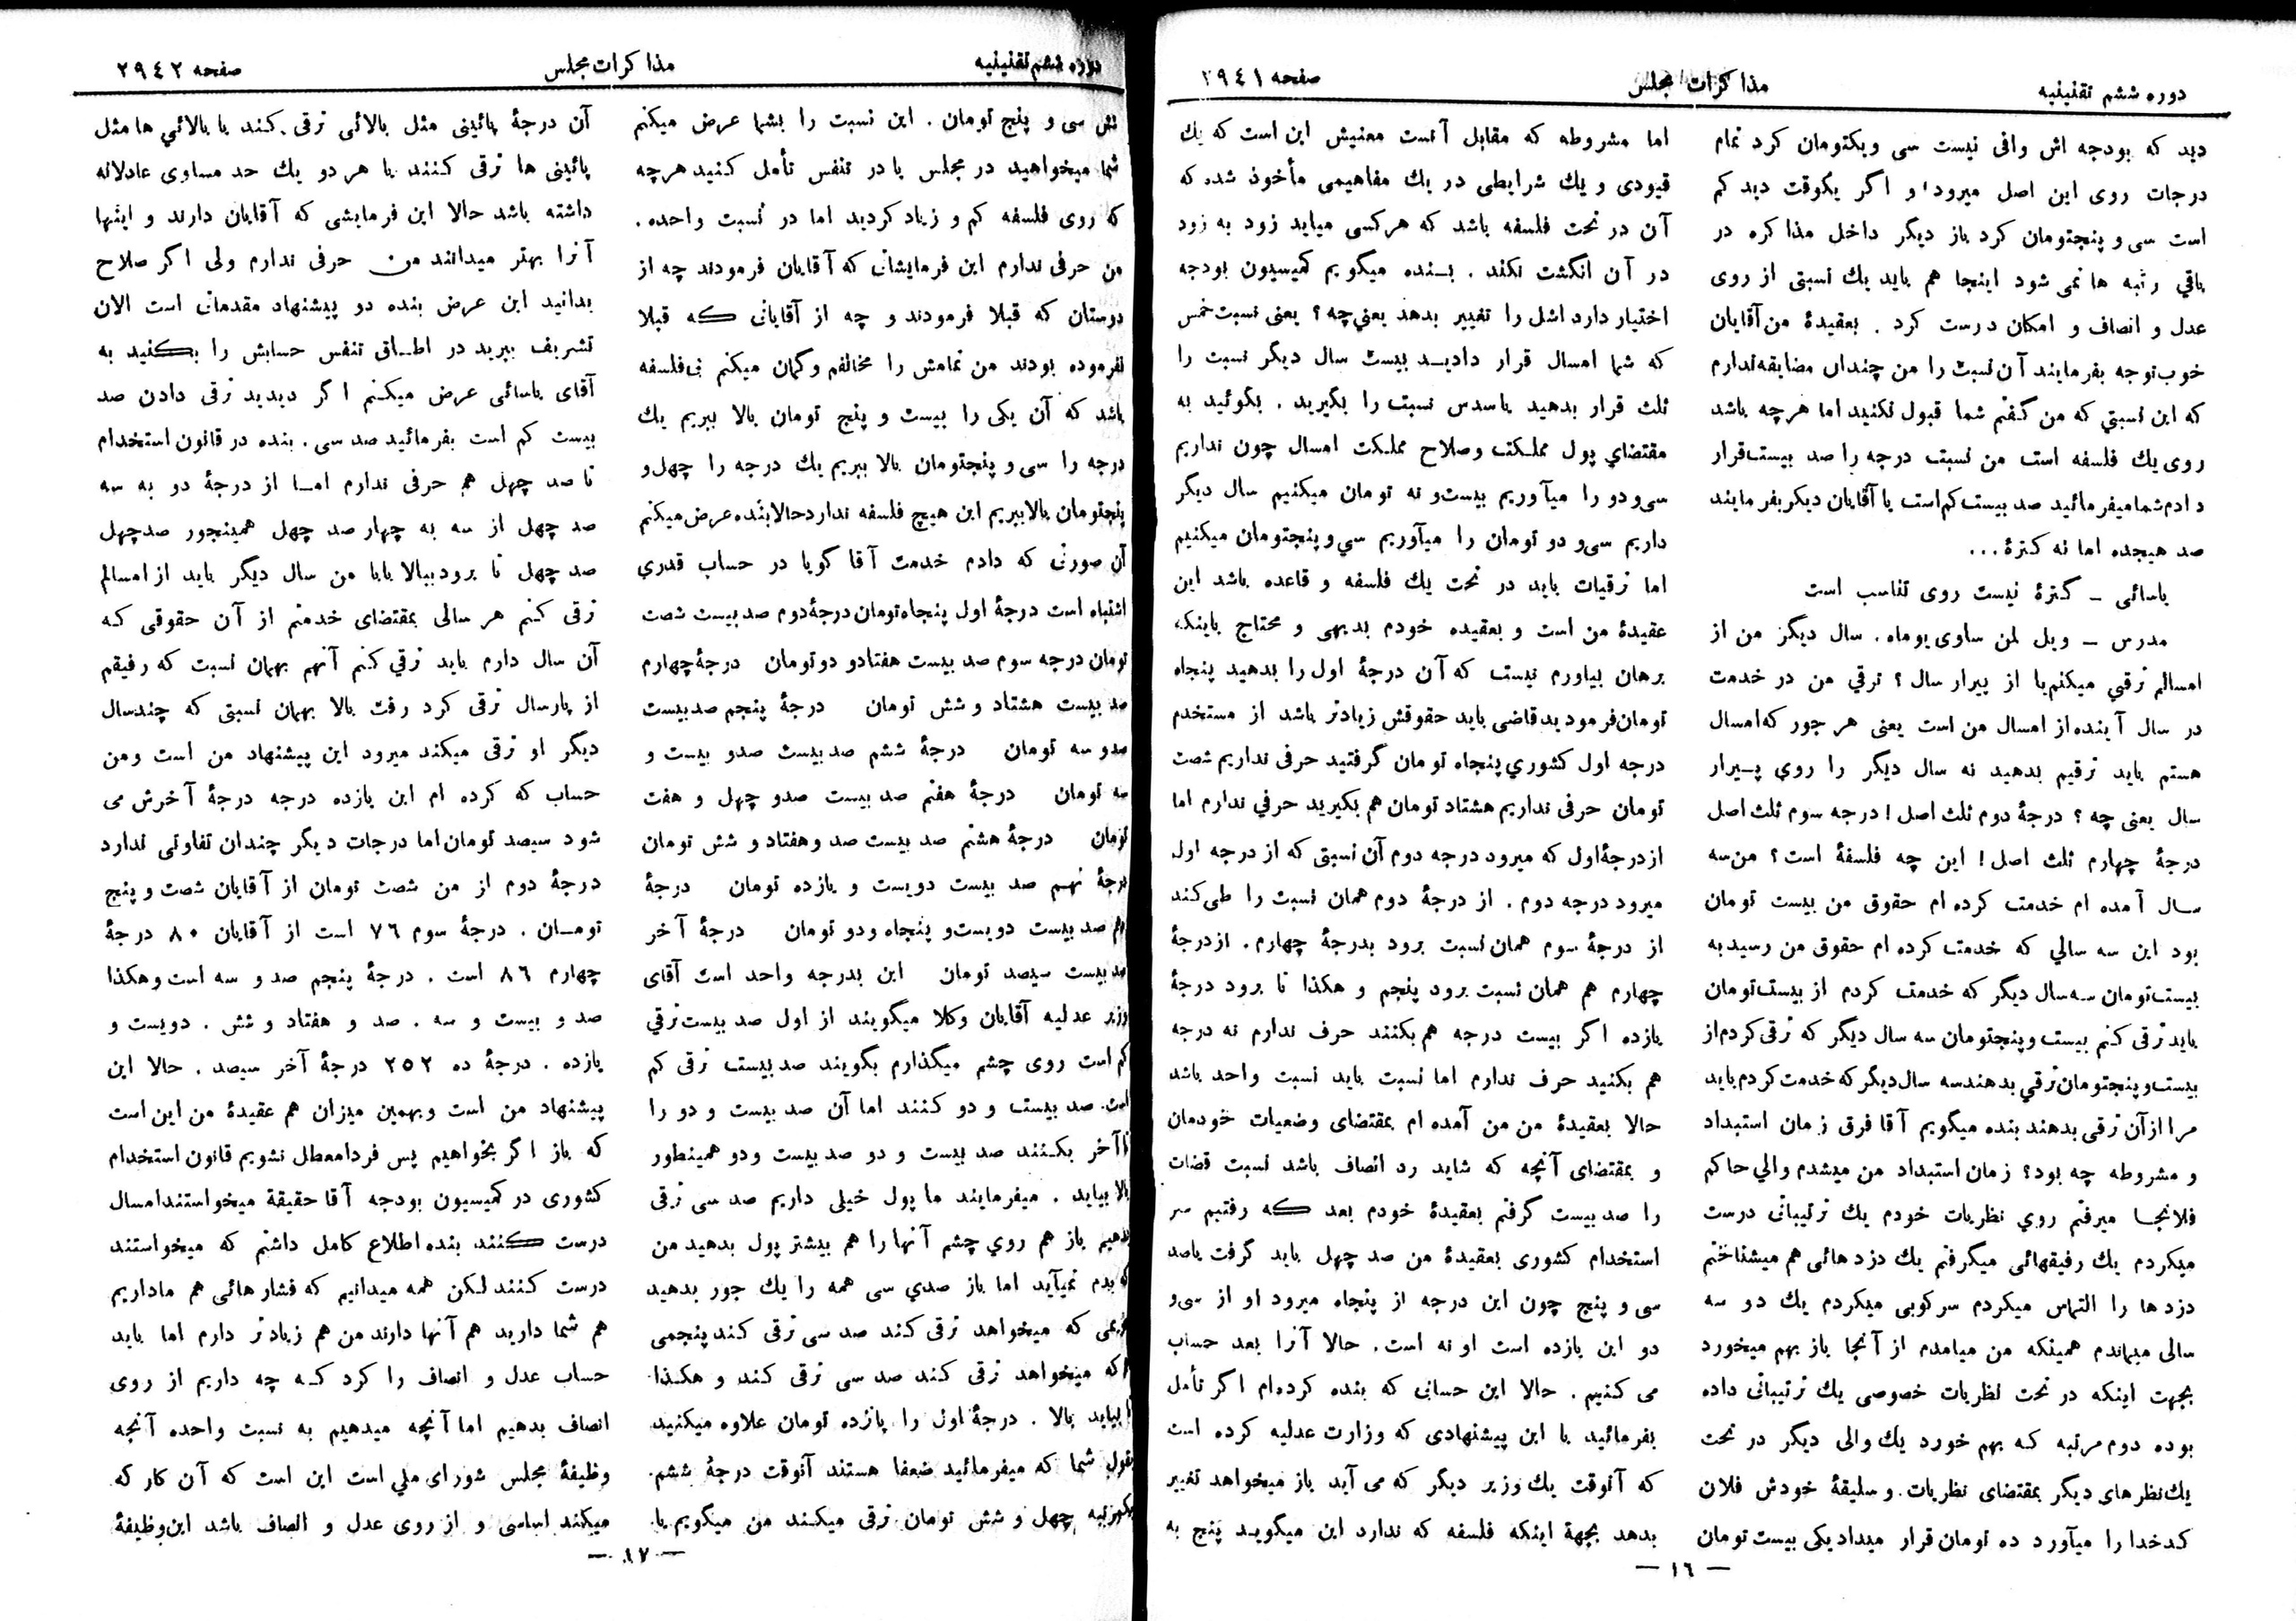 دوره ششم تقنینیه
مذاکرات مجلس
صفحه ۲۹٤۱
دید که بودجه اش وافی نیست سی ویکتومان کرد تمام
درجات روی این اصل میرود و اگر یکوقت دید کم
است سی و پنجتومان کرد باز دیگر داخل مذاکره در
باقي رتبه ها نمی شود اینجا هم باید یك نسبتی از روی
عدل و انصاف و امکان درست کرد . بعقیدۀ من آقایان
خوب توجه بفرمایند آن نسبت را من چندان مضایقه ندارم
که این نسبتي که من گفتم شما قبول نکنید اما هرچه باشد
روی یك فلسفه است من نسبت درجه را صد بیست قرار
دادم شما میفرمائید صد بیست کم است یا آقایان دیگر بفرمایند
صد هیجده اما نه کترۀ ...
یاسائی ــ کترۀ نیست روی تناسب است
مدرس ــ ویل لمن ساوی یوماه . سال دیگر من از
امسالم ترقي میکنم یا از پیرار سال ؟ ترقي من در خدمت
در سال آینده از امسال من است یعنی هر جور که امسال
هستم باید ترقیم بدهید نه سال دیگر را روي پیرار
سال یعنی چه ؟ درجۀ دوم ثلث اصل ! درجه سوم ثلث اصل
درجۀ چهارم ثلث اصل ! این چه فلسفۀ است ؟ من سه
سال آمده ام خدمت کرده ام حقوق من بیست تومان
بود این سه سالي که خدمت کرده ام حقوق من رسید به
بیست تومان سه سال دیگر که خدمت کردم از بیست تومان
باید ترقی کنم بیست و پنجتومان سه سال دیگر که ترقی کردم از
بیست و پنجتومان ترقي بدهند سه سال دیگر که خدمت کردم باید
مرا از آن ترقی بدهند بنده میگویم آقا فرق زمان استبداد
و مشروطه چه بود؟ زمان استبداد من میشدم والي حاکم
فلانجا میرفتم روي نظریات خودم یك ترتیباتی درست
میکردم یك رفیقهائی میگرفتم یك دزد هائی هم میشناختم
دزد ها را التماس میکردم سرکوبی میکردم یك دو سه
سالی میماندم همینکه من میامدم از آنجا باز بهم میخورد
بجهت اینکه در تحت نظریات خصوصی یك ترتیباتی داده
بوده دوم مرتبه که بهم خورد یك والی دیگر در تحت
یك نظرهای دیگر بمقتضای نظریات و سلیقۀ خودش فلان
کدخدا را میآورد ده تومان قرار میداد یکی بیست تومان
اما مشروطه که مقابل آنست معنیش این است که یك
قیودی و یك شرایطی در یك مفاهیمی مأخوذ شده که
آن در تحت فلسفه باشد که هرکسی میاید زود به زود
در آن انگشت نکند . بنده میگویم کمیسیون بودجه
اختیار دارد اشل را تغییر بدهد یعني چه ؟ یعنی نسبت خمس
که شما امسال قرار دادید بیست سال دیگر نسبت را
ثلث قرار بدهید یا سدس نسبت را بگیرید . بگوئید به
مقتضاي پول مملکت و صلاح مملکت امسال چون نداریم
سی و دو را میآوریم بیست و نه تومان میکنیم سال دیگر
داریم سی و دو تومان را میآوریم سي و پنجتومان میکنیم
اما ترقیات باید در تحت یك فلسفه و قاعده باشد این
عقیدۀ من است و بعقیده خودم بدیهی و محتاج باینکه
برهان بیاورم نیست که آن درجۀ اول را بدهید پنجاه
تومان فرمودید قاضی باید حقوقش زیادتر باشد از مستخدم
درجه اول کشوري پنجاه تومان گرفتید حرفی نداریم شصت
تومان حرفی نداریم هشتاد تومان هم بکیرید حرفي ندارم اما
از درجۀ اول که میرود درجه دوم آن نسبتی که از درجه اول
میرود درجه دوم . از درجۀ دوم همان نسبت را طی کند
از درجۀ سوم همان نسبت برود بدرجۀ چهارم . از درجۀ
چهارم هم همان نسبت برود پنجم و هکذا تا برود درجۀ
یازده اگر بیست درجه هم بکنند حرف ندارم نه درجه
هم بکنید حرف ندارم اما نسبت باید نسبت واحد باشد
حالا بعقیدۀ من من آمده ام بمقتضای وضعیات خودمان
و بمقتضای آنچه که شاید رد انصاف باشد نسبت قضات
را صد بیست گرفتم بعقیدۀ خودم بعد که رفتیم سر
استخدام کشوری بعقیدۀ من صد چهل باید گرفت یا صد
سی و پنج چون این درجه از پنجاه میرود او از سی و
دو این یازده است او نه است . حالا آنرا بعد حساب
می کنیم . حالا این حسابی که بنده کرده‌ام اگر تأمل
بفرمائید با این پیشنهادی که وزارت عدلیه کرده است
که آنوقت یك وزیر دیگر که می آید باز میخواهد تغییر
بدهد بجهة اینکه فلسفه که ندارد این میگوید پنج به
— ١٦ —
دوره ششم تقنینیه
مذاکرات مجلس
صفحه ۲۹٤۲
سی و پنج تومان . این نسبت را بشما عرض میکنم
شما میخواهید در مجلس یا در تنفس تأمل کنید هرچه
که روی فلسفه کم و زیاد کردید اما در نسبت واحده .
من حرفی ندارم این فرمایشاتی که آقایان فرمودند چه از
دوستان که قبلا فرمودند و چه از آقایانی که قبلا
نفرموده بودند من تمامش را مخالفم و گمان میکنم بی فلسفه
باشد که آن یکی را بیست و پنج تومان بالا ببریم یك
درجه را سی و پنجتومان بالا ببریم یك درجه را چهل و
پنجتومان بالا ببریم این هیچ فلسفه ندارد حالا بنده عرض میکنم
آن صورتی که دادم خدمت آقا گویا در حساب قدري
اشتباه است درجۀ اول پنجاه تومان درجۀ دوم صد بیست شصت
تومان درجه سوم صد بیست هفتاد و دو تومان درجۀ چهارم
صد بیست هشتاد و شش تومان درجۀ پنجم صد بیست
صد و سه تومان درجۀ ششم صد بیست صد و بیست و
سه تومان درجۀ هفتم صد بیست صد و چهل و هفت
تومان درجۀ هشتم صد بیست صد و هفتاد و شش تومان
درجۀ نهم صد بیست دویست و یازده تومان درجۀ
دهم صد بیست دویست و پنجاه و دو تومان درجۀ آخر
صد بیست سیصد تومان این بدرجه واحد است آقای
وزیر عدلیه آقایان وکلا میگویند از اول صد بیست ترقي
کم است روی چشم میگذارم بگویند صد بیست ترقی کم
است. صد بیست و دو کنند اما آن صد بیست و دو را
تا آخر بکنند صد بیست و دو صد بیست و دو همینطور
بالا بیاید . میفرمایند ما پول خیلی داریم صد سی ترقی
بدهیم باز هم روي چشم آنها را هم بیشتر پول بدهید من
که بدم نمیآید اما باز صدي سی همه را یك جور بدهید
که میخواهد ترقی کند صد سی ترقی کند پنجمی
که میخواهد ترقی کند صد سی ترقی کند و هکذا
تا بیاید بالا . درجۀ اول را پانزده تومان علاوه میکنید
بقول شما که میفرمائید ضعفا هستند آنوقت درجۀ ششم
یکمرتبه چهل و شش تومان ترقی میکند من میگویم یا
آن درجۀ پائینی مثل بالائی ترقی کند یا بالائي ها مثل
پائینی ها ترقی کنند یا هر دو یك حد مساوی عادلانه
داشته باشد حالا این فرمایشی که آقایان دارند و اینها
آنرا بهتر میدانند من حرفی ندارم ولی اگر صلاح
بدانید این عرض بنده دو پیشنهاد مقدماتی است الان
تشریف ببرید در اطاق تنفس حسابش را بکنید به
آقای یاسائی عرض میکنم اگر دیدید ترقی دادن صد
بیست کم است بفرمائید صد سی . بنده در قانون استخدام
تا صد چهل هم حرفی ندارم اما از درجۀ دو به سه
صد چهل از سه به چهار صد چهل همینجور صد چهل
صد چهل تا برود ببالا بابا من سال دیگر باید از امسالم
ترقی کنم هر سالی بمقتضای خدمتم از آن حقوقی که
آن سال دارم باید ترقي کنم آنهم بهمان نسبت که رفیقم
از پارسال ترقی کرد رفت بالا بهمان نسبتی که چند سال
دیگر او ترقی میکند میرود این پیشنهاد من است و من
حساب که کرده ام این یازده درجه درجۀ آخرش می
شود سیصد تومان اما درجات دیگر چندان تفاوتی ندارد
درجۀ دوم از من شصت تومان از آقایان شصت و پنج
تومان . درجۀ سوم ۷٦ است از آقایان ۸۰ درجۀ
چهارم ۸٦ است . درجۀ پنجم صد و سه است و هکذا
صد و بیست و سه . صد و هفتاد و شش . دویست و
یازده . درجۀ ده ۲۵۲ درجۀ آخر سیصد . حالا این
پیشنهاد من است و بهمین میزان هم عقیدۀ من این است
که باز اگر بخواهیم پس فردا معطل نشویم قانون استخدام
کشوری در کمیسیون بودجه آقا حقیقة میخواستند امسال
درست کنند بنده اطلاع کامل داشتم که میخواستند
درست کنند لکن همه میدانیم که فشار هائی هم ما داریم
هم شما دارید هم آنها دارند من هم زیادتر دارم اما باید
حساب عدل و انصاف را کرد که چه داریم از روی
انصاف بدهیم اما آنچه میدهیم به نسبت واحده آنچه
وظیفۀ مجلس شورای ملي است این است که آن کار که
میکند اساسی و از روی عدل و انصاف باشد این وظیفۀ
— ۱۷ —